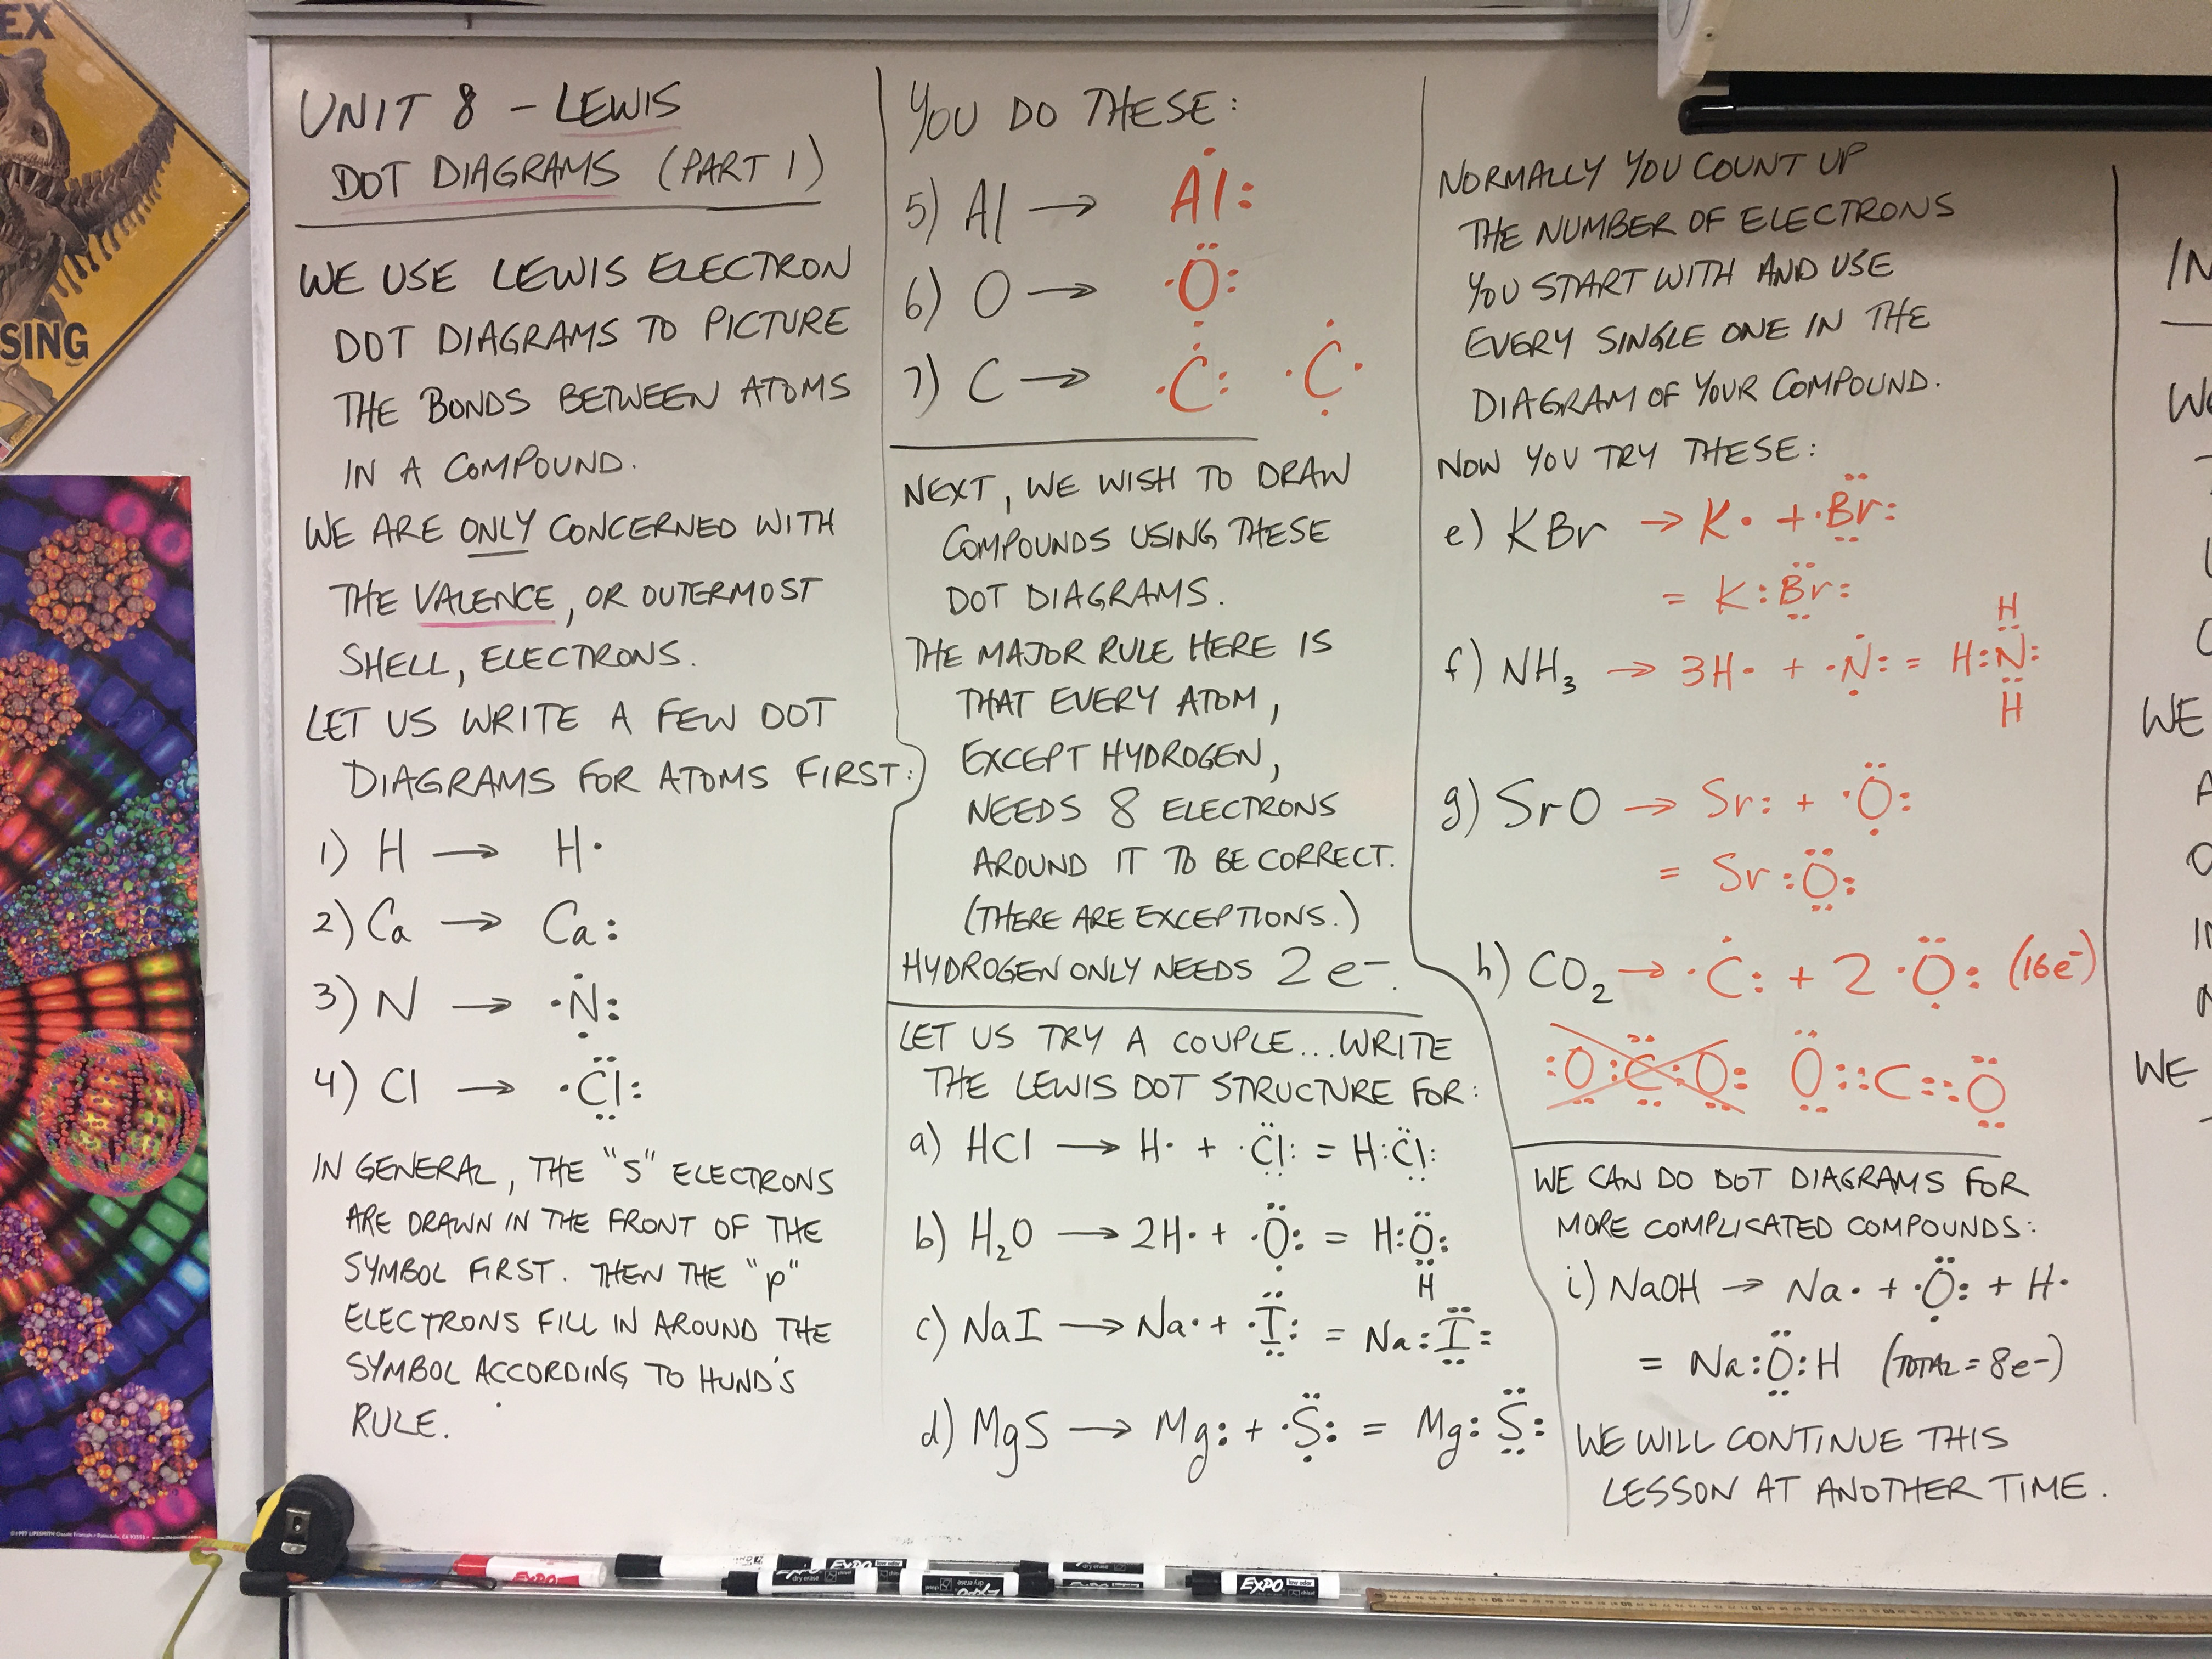 EX
SING
UNIT 8 - LEWIS
DOT DIAGRAMS (PART 1)
WE USE LEWIS ELECTRON
DOT DIAGRAMS TO PICTURE
THE BONDS BETWEEN ATOMS
IN A COMPOUND.
WE ARE ONLY CONCERNED WITH
THE VALENCE, OR OUTERMOST
SHELL, ELECTRONS.
LET US WRITE A FEW DOT
DIAGRAMS FOR ATOMS FIRST:
1) H → H·
2) Ca → Ca:
3) N → ·Ṇ̇:
4) Cl → ·C̤̈l:
IN GENERAL, THE "S" ELECTRONS
ARE DRAWN IN THE FRONT OF THE
SYMBOL FIRST. THEN THE "p"
ELECTRONS FILL IN AROUND THE
SYMBOL ACCORDING TO HUND'S
RULE.
YOU DO THESE:
5) Al →Ȧl:
6) O → ·Ọ̈:
7) C → ·Ċ: ·Ċ̣·
NEXT, WE WISH TO DRAW
COMPOUNDS USING THESE
DOT DIAGRAMS.
THE MAJOR RULE HERE IS
THAT EVERY ATOM,
EXCEPT HYDROGEN,
NEEDS 8 ELECTRONS
AROUND IT TO BE CORRECT.
(THERE ARE EXCEPTIONS.)
HYDROGEN ONLY NEEDS 2 e-.
LET US TRY A COUPLE...WRITE
THE LEWIS DOT STRUCTURE FOR:
a) HCl → H· + ·C̤̈l: = H:C̤̈l:
b) H₂O → 2H· + ·Ọ̈: = H:Ö̤:
H
c) NaI → Na· + ·Ï̤: = Na:Ï̤:
d) MgS → Mg: + ·Ṣ̈: = Mg:S̤̈:
NORMALLY YOU COUNT UP
THE NUMBER OF ELECTRONS
YOU START WITH AND USE
EVERY SINGLE ONE IN THE
DIAGRAM OF YOUR COMPOUND.
NOW YOU TRY THESE:
e) KBr → K· + ·B̤̈r:
= K:B̤̈r:
H
f) NH₃ → 3H· + ·Ṇ̇: = H:N̤̈:
H
g) SrO → Sr: + ·Ọ̈:
= Sr:Ö̤:
h) CO₂ → ·Ċ: + 2 ·Ọ̈: (16e-)
:O̤:C̤̈:O̤: Ö̤::C::Ö̤
WE CAN DO DOT DIAGRAMS FOR
MORE COMPLICATED COMPOUNDS:
i) NaOH → Na· + ·Ọ̈: + H·
= Na:Ö̤:H (TOTAL = 8e-)
WE WILL CONTINUE THIS
LESSON AT ANOTHER TIME.
IN
WE
WE
EXPO
EXPO
EXPO
EXPO low odor